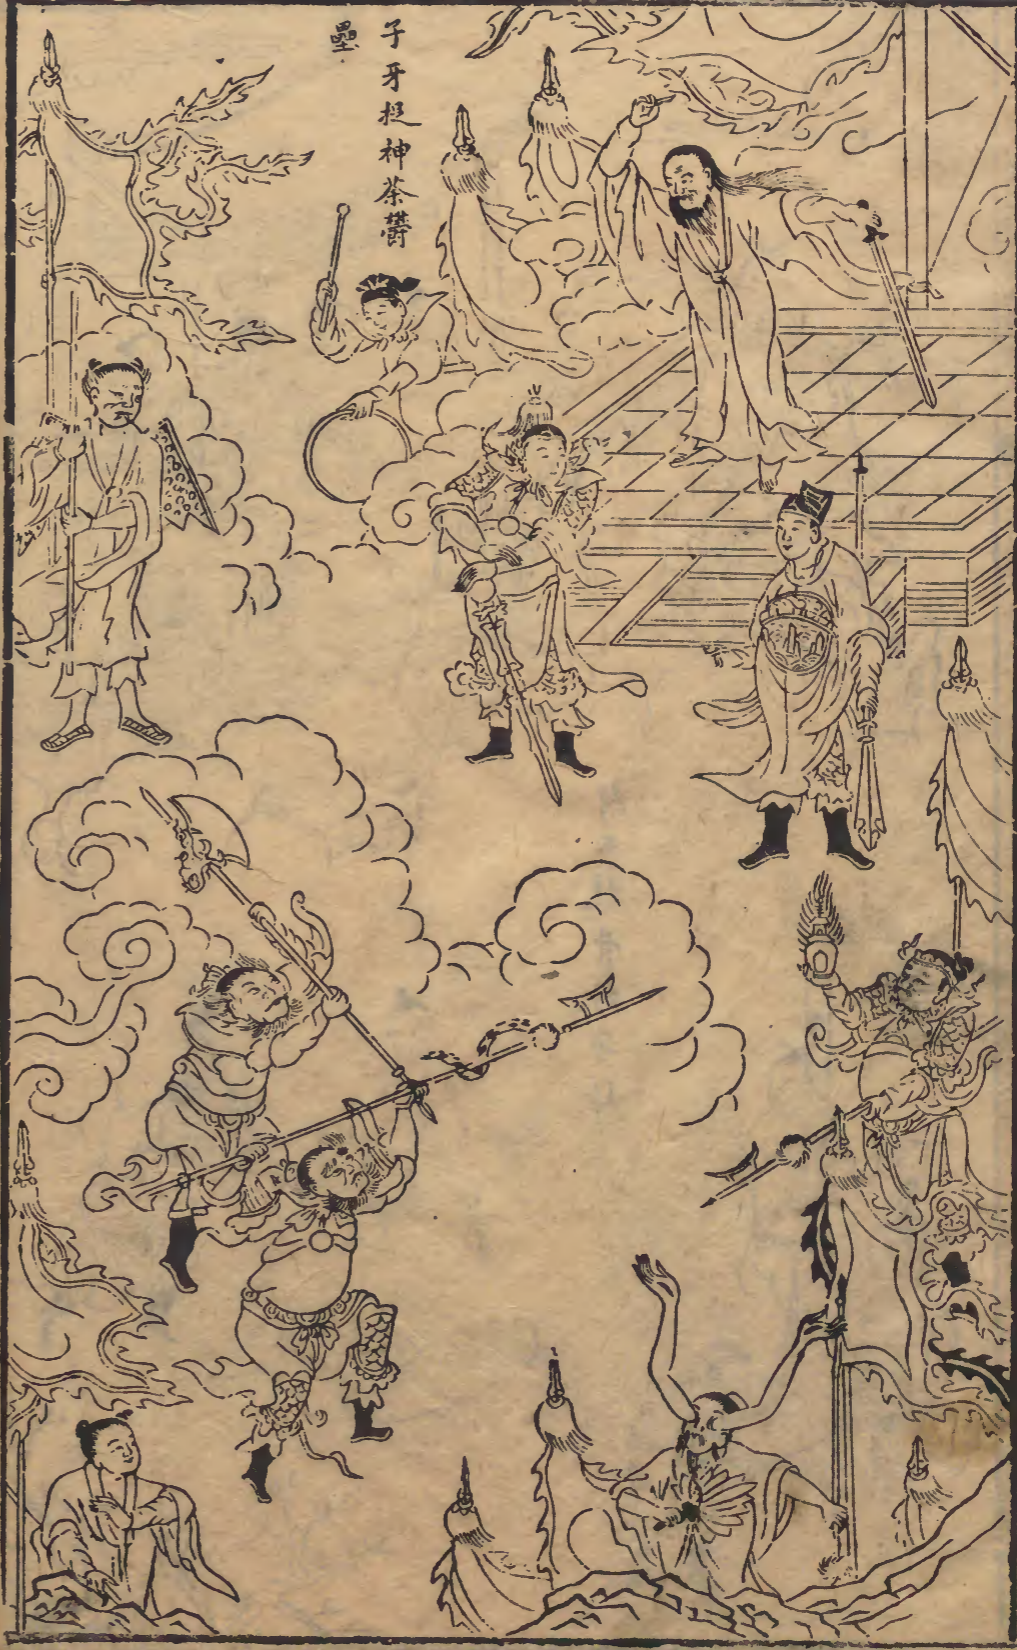 子牙捉神荼鬱
壘